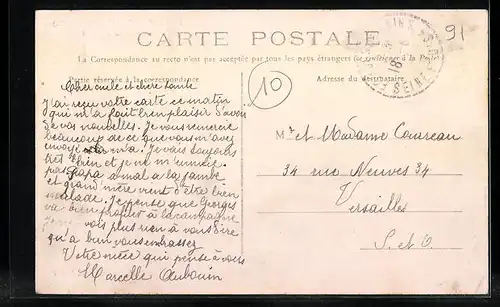 CARTE POSTALE
91
La Correspondance au recto n'est pas acceptée par tous les pays étrangers (se renseigner à la Poste)
Partie réservée à la correspondance
Adresse du destinataire
10
Cher oncle et chère tante
J'ai reçu votre carte ce matin
qui m'a fait bien plaisir d'avoir
de vos nouvelles. Je vous remercie
beaucoup de ce que vous m'avez
envoyé Je vais toujours
très bien et je ne m'ennuie
pas papa a mal a la jambe
et grand mère vient d'être bien
malade. Je pense que Georges
va bien profiter à la campagne
vois plus rien à vous dire
qu'a bien vous embrasser
Votre nièce qui pense à vous
Marcelle Aubouin
Mr et Madame Coureau
34 rue Neuves 34
Versailles
S. et O.